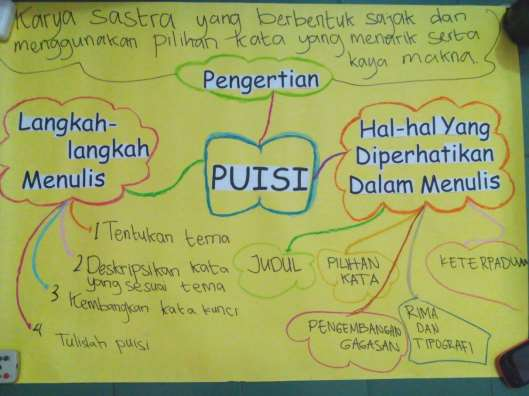 Karya sastra yang berbentuk sajak dan
menggunakan pilihan kata yang menarik serta
kaya makna.
Pengertian
Langkah-
langkah
Menulis
PUISI
Hal-hal Yang
Diperhatikan
Dalam Menulis
1 Tentukan tema
2 Deskripsikan kata
yang sesuai tema
3 Kembangkan kata kunci
4 Tulislah puisi
JUDUL
PILIHAN
KATA
KETERPADUAN
PENGEMBANGAN
GAGASAN
RIMA
DAN
TIPOGRAFI